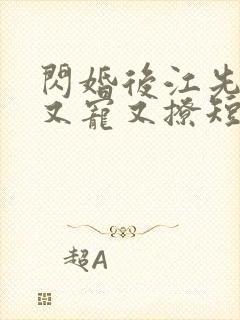 閃婚後江先
又寵又撩短
超A